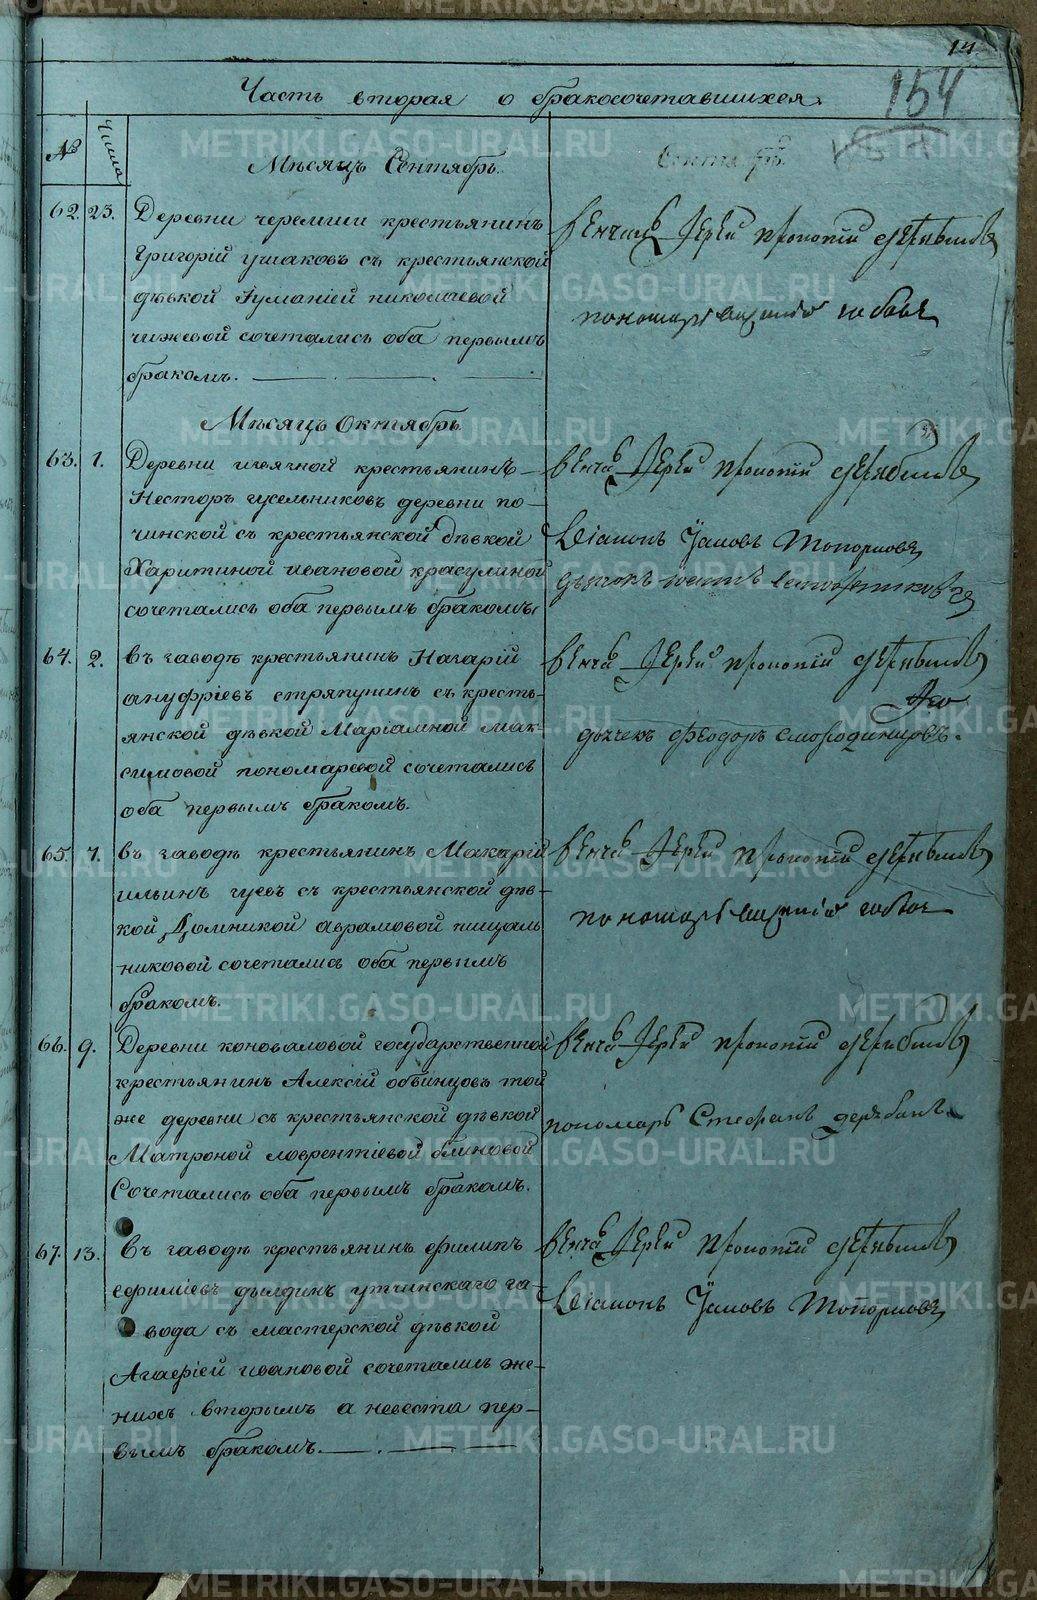 14
154
Часть вторая о бракосочетавшихся.
№ Числа
Мѣсяцъ Сентябрь.
62. 23. Деревни черемши крестьянинъ
Григорій ушаковъ съ крестьянской
дѣвкой Іуманіей николаевой
чижевой сочетались оба первымъ
бракомъ.
Венчалъ Іерей Прокопій
пономарь
Мѣсяцъ Октябрь
63. 1. Деревни крестьянинъ
Несторъ гусельниковъ деревни по-
чинской съ крестьянской дѣвкой
Харитиной ивановой красулиной
сочетались оба первымъ бракомъ
Венча Іерей Прокопій
Діаконъ Іаковъ Топорковъ
64. 2. въ заводѣ крестьянинъ Назарій
ануфріевъ стряпунинъ съ кресть-
янской дѣвкой Маріамной мак-
симовой пономаревой сочетались
оба первымъ бракомъ.
Венча Іерей Прокопій
дьячекъ Феодоръ смородинцовъ.
65. 7. въ заводѣ крестьянинъ Макарій
ильинъ гуевъ съ крестьянской дѣв-
кой Домникой аврамовой пищаль
никовой сочетались оба первымъ
бракомъ.
Венча Іерей Прокопій
пономарь
66. 9. Деревни коноваловой государственной
крестьянинъ Алексій обвинцовъ той
же деревни съ крестьянской дѣвкой
Матроной лаврентіевой блиновой
Сочетались оба первымъ бракомъ.
Венча Іерей Прокопій
пономарь Стефанъ
67. 13. Въ заводѣ крестьянинъ филипъ
ефиміевъ дылдинъ уткинскаго за-
вода съ мастерской дѣвкой
Агафіей ивановой сочетались же-
нихъ вторымъ а невеста пер-
вымъ бракомъ.
Венча Іерей Прокопій
Діаконъ Іаковъ Топорковъ
METRIKI.GASO-URAL.RU